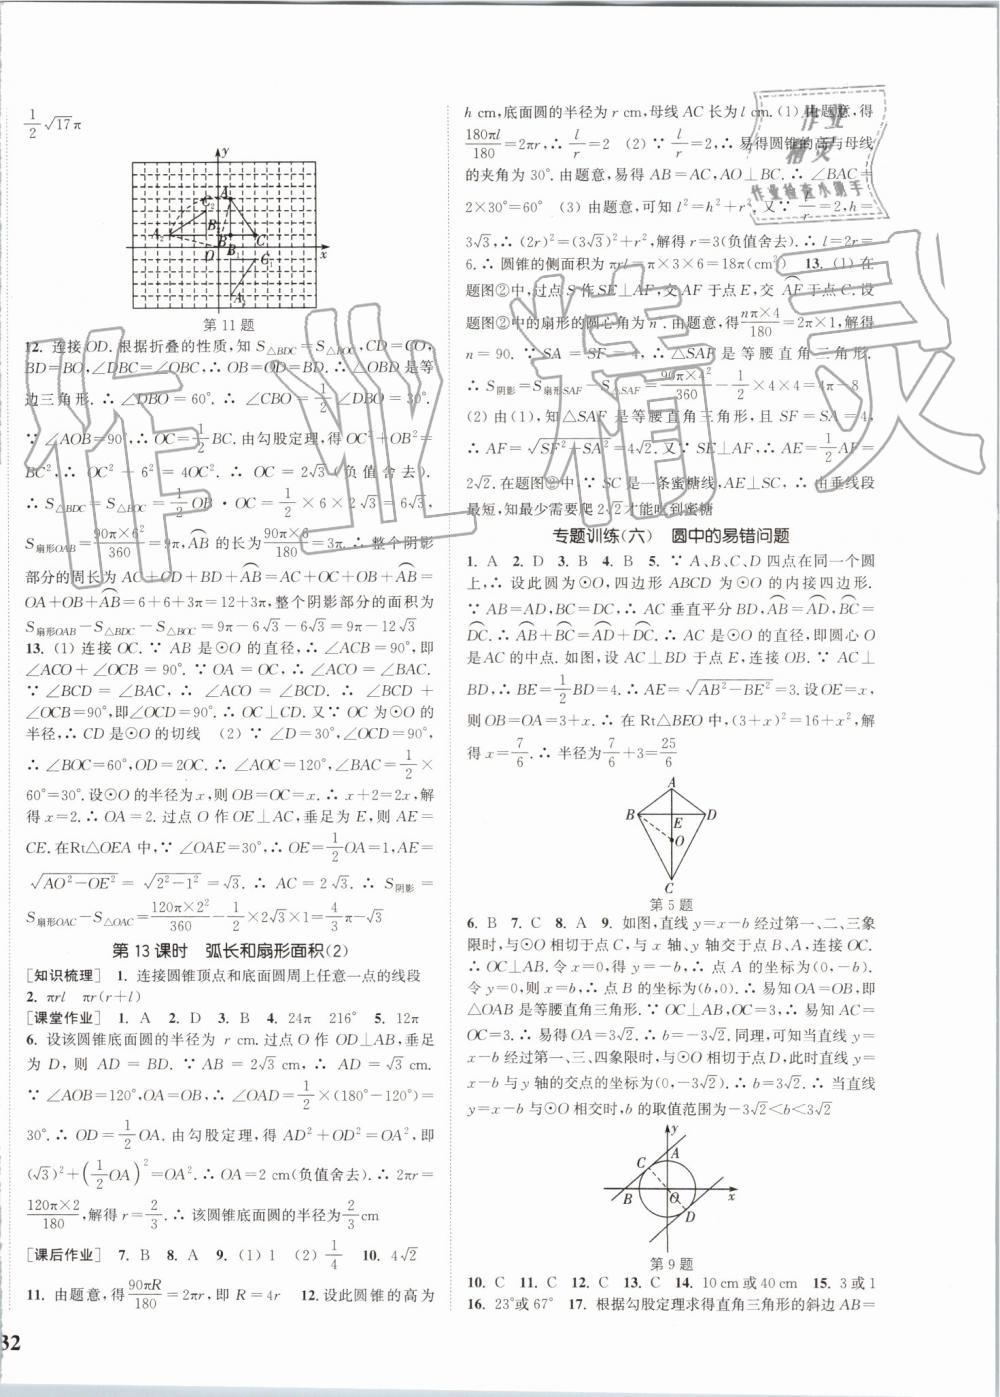 1/2 √17π
y
A₂ C₂ A B₂ B B₁ C O C₁ A₁ x
第11题
12. 连接OD. 根据折叠的性质,知 S△BDC=S△BOC,CD=CO,
BD=BO,∠DBC=∠OBC,∴ OB=OD=BD.∴ △OBD是等
边三角形.∴ ∠DBO=60°.∴ ∠CBO=1/2∠DBO=30°.
∵ ∠AOB=90°,∴ OC=1/2BC. 由勾股定理,得 OC²+OB²=
BC²,∴ OC²+6²=4OC².∴ OC=2√3(负值舍去).
∴ S△BDC=S△BOC=1/2OB·OC=1/2×6×2√3=6√3,
S扇形OAB=90π×6²/360=9π,⌒AB的长为90π×6/180=3π.∴ 整个阴影
部分的周长为 AC+CD+BD+⌒AB=AC+OC+OB+⌒AB=
OA+OB+⌒AB=6+6+3π=12+3π,整个阴影部分的面积为
S扇形OAB-S△BDC-S△BOC=9π-6√3-6√3=9π-12√3
13. (1) 连接OC.∵ AB是⊙O的直径,∴ ∠ACB=90°,即
∠ACO+∠OCB=90°.∵ OA=OC,∴ ∠ACO=∠BAC.
∵ ∠BCD=∠BAC,∴ ∠ACO=∠BCD.∴ ∠BCD+
∠OCB=90°,即∠OCD=90°.∴ OC⊥CD. 又∵ OC为⊙O的
半径,∴ CD是⊙O的切线 (2) ∵ ∠D=30°,∠OCD=90°,
∴ ∠BOC=60°,OD=2OC.∴ ∠AOC=120°,∠BAC=1/2×
60°=30°. 设⊙O的半径为x,则OB=OC=x.∴ x+2=2x,解
得x=2.∴ OA=2. 过点O作OE⊥AC,垂足为E,则 AE=
CE. 在Rt△OEA中,∵ ∠OAE=30°,∴ OE=1/2OA=1,AE=
√(AO²-OE²)=√(2²-1²)=√3.∴ AC=2√3.∴ S阴影=
S扇形OAC-S△OAC=120π×2²/360-1/2×2√3×1=4/3π-√3
第13课时 弧长和扇形面积(2)
[知识梳理] 1. 连接圆锥顶点和底面圆周上任意一点的线段
2. πrl πr(r+l)
[课堂作业] 1. A 2. D 3. B 4. 24π 216° 5. 12π
6. 设该圆锥底面圆的半径为 r cm. 过点O作OD⊥AB,垂足
为D,则 AD=BD.∵ AB=2√3 cm,∴ AD=√3 cm.
∵ ∠AOB=120°,OA=OB,∴ ∠OAD=1/2×(180°-120°)=
30°.∴ OD=1/2OA. 由勾股定理,得 AD²+OD²=OA²,即
(√3)²+(1/2OA)²=OA².∴ OA=2 cm(负值舍去).∴ 2πr=
120π×2/180,解得r=2/3.∴ 该圆锥底面圆的半径为2/3cm
[课后作业] 7. B 8. A 9. (1) 1 (2) 1/4 10. 4√2
11. 由题意,得90πR/180=2πr,即R=4r 12. 设此圆锥的高为
32
h cm,底面圆的半径为r cm,母线AC长为l cm. (1) 由题意,得
180πl/180=2πr,∴ l/r=2 (2) ∵ l/r=2,∴ 易得圆锥的高与母线
的夹角为30°. 由题意,易得AB=AC,AO⊥BC.∴ ∠BAC=
2×30°=60° (3) 由题意,可知l²=h²+r². 又∵ l/r=2,h=
3√3,∴ (2r)²=(3√3)²+r²,解得r=3(负值舍去).∴ l=2r=
6.∴ 圆锥的侧面积为πrl=π×3×6=18π(cm²) 13. (1) 在
题图②中,过点S作SE⊥AF,交AF于点E,交⌒AF于点C. 设
题图②中的扇形的圆心角为n°. 由题意,得nπ×4/180=2π×1,解得
n=90.∵ SA=SF=4,∴ △SAF是等腰直角三角形.
∴ S阴影=S扇形SAF-S△SAF=90π×4²/360-1/2×4×4=4π-8
(2) 由(1),知△SAF是等腰直角三角形,且SF=SA=4,
∴ AF=√(SF²+SA²)=4√2. 又∵ SE⊥AF,∴ SE=1/2AF=
2√2. 在题图②中,∵ SC是一条蜜糖线,AE⊥SC,∴ 由垂线段
最短,知最少需要爬2√2才能吃到蜜糖
专题训练(六) 圆中的易错问题
1. A 2. D 3. B 4. B 5. ∵ A、B、C、D四点在同一个圆
上,∴ 设此圆为⊙O,四边形ABCD为⊙O的内接四边形.
∵ AB=AD,BC=DC,∴ AC垂直平分BD,⌒AB=⌒AD,⌒BC=
⌒DC.∴ ⌒AB+⌒BC=⌒AD+⌒DC.∴ AC是⊙O的直径,即圆心O
是AC的中点. 如图,设AC⊥BD于点E,连接OB.∵ AC⊥
BD,∴ BE=1/2BD=4.∴ AE=√(AB²-BE²)=3. 设OE=x,
则OB=OA=3+x.∴ 在Rt△BEO中,(3+x)²=16+x²,解
得x=7/6.∴ 半径为7/6+3=25/6
A B E D O C
第5题
6. B 7. C 8. A 9. 如图,直线y=x-b经过第一、二、三象
限时,与⊙O相切于点C,与x轴、y轴交于点B、A,连接OC.
∴ OC⊥AB. 令x=0,则y=-b.∴ 点A的坐标为(0,-b).
令y=0,则x=b.∴ 点B的坐标为(b,0).∴ 易知OA=OB,即
△OAB是等腰直角三角形.∵ OC⊥AB,OC=3,∴ AC=
OC=3.∴ 易得OA=3√2.∴ b=-3√2. 同理,可知当直线y=
x-b经过第一、三、四象限时,与⊙O相切于点D,此时直线y=
x-b与y轴的交点的坐标为(0,-3√2).∴ b=3√2.∴ 当直线
y=x-b与⊙O相交时,b的取值范围为-3√2<b<3√2
y C A B O D x
第9题
10. C 11. C 12. C 13. C 14. 10 cm或40 cm 15. 3或1
16. 23°或67° 17. 根据勾股定理求得直角三角形的斜边AB=
作业
精灵
作业检查小助手
作业精灵